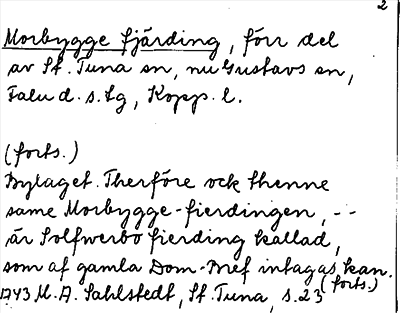 2
Morbygge fjärding, förr del
av St. Tuna sn, nu Gustavs sn,
Falu d. s. lg, Kopp. l.
(forts.)
Bylaget. Therföre ock thenne
same Morbygge-fierdingen, --
är Solfwerbo fierding kallad,
som af gamla Dom-Bref intagas kan.
1743 M. A. Sahlstedt, St. Tuna, s. 23 (forts.)